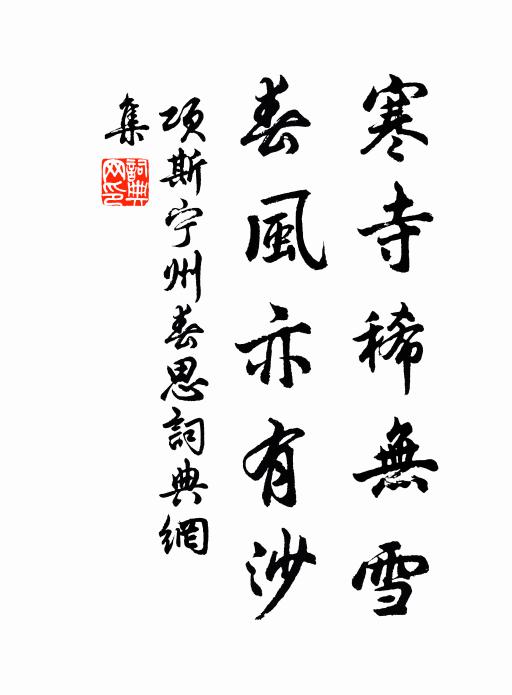 寒寺稀無雪
春風亦有沙
項斯宁州春思詞典網
集
詞典网印